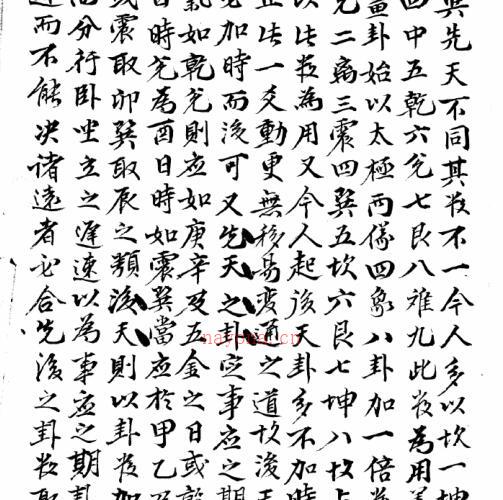 與先天不同其数不一今人多以坎一坤
四中五乾六兌七艮八離九此数為用
畫卦始以太極兩儀四象八卦加一倍
兌二离三震四巽五坎六艮七坤八故占
以此数為用又今人起後天卦多不加時
止此一爻動更無移易変通之道故後天
必加時而後可又先天之卦定事应之期
氣如乾兌則应如庚辛及五金之日或乾
日時兌為酉日時如震巽當应於甲乙及
或震取卯巽取辰之類後天則以卦数加
分行卧坐立之遲速以為事应之期卦
近而不能决諸遠者必合先後之卦数取
nayona.cn